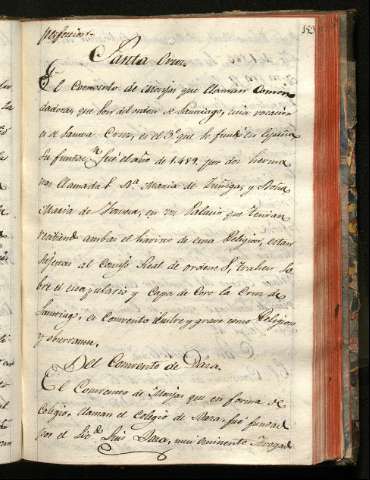 profesion.
352
Santa Cruz.
El Convento de Monjas que llaman Comen
dadoras, que son del orden de Santiago, cuia vocacion
es de Santa Cruz, es el 3º que se fundó en España
su fundac.n fué el año de 1489. por dos herma
nas llamadas D.ª Maria de Zuñiga, y Doña
Maria de            , en un Palacio que tenian
recibiendo ambas el havito de esta Religion, estan
sujetas al Consejo Real de ordenes, trahen so
bre el escapulario y Capa de Coro la Cruz de
Santiago, es Convento ilustre y grave como Religioso
y observante.
Del Convento de Daza.
El Convento de Monjas que en forma de
Colegio llaman el Colegio de Daza, fué fundado
por el Liz.do Luis Daza, mui eminente